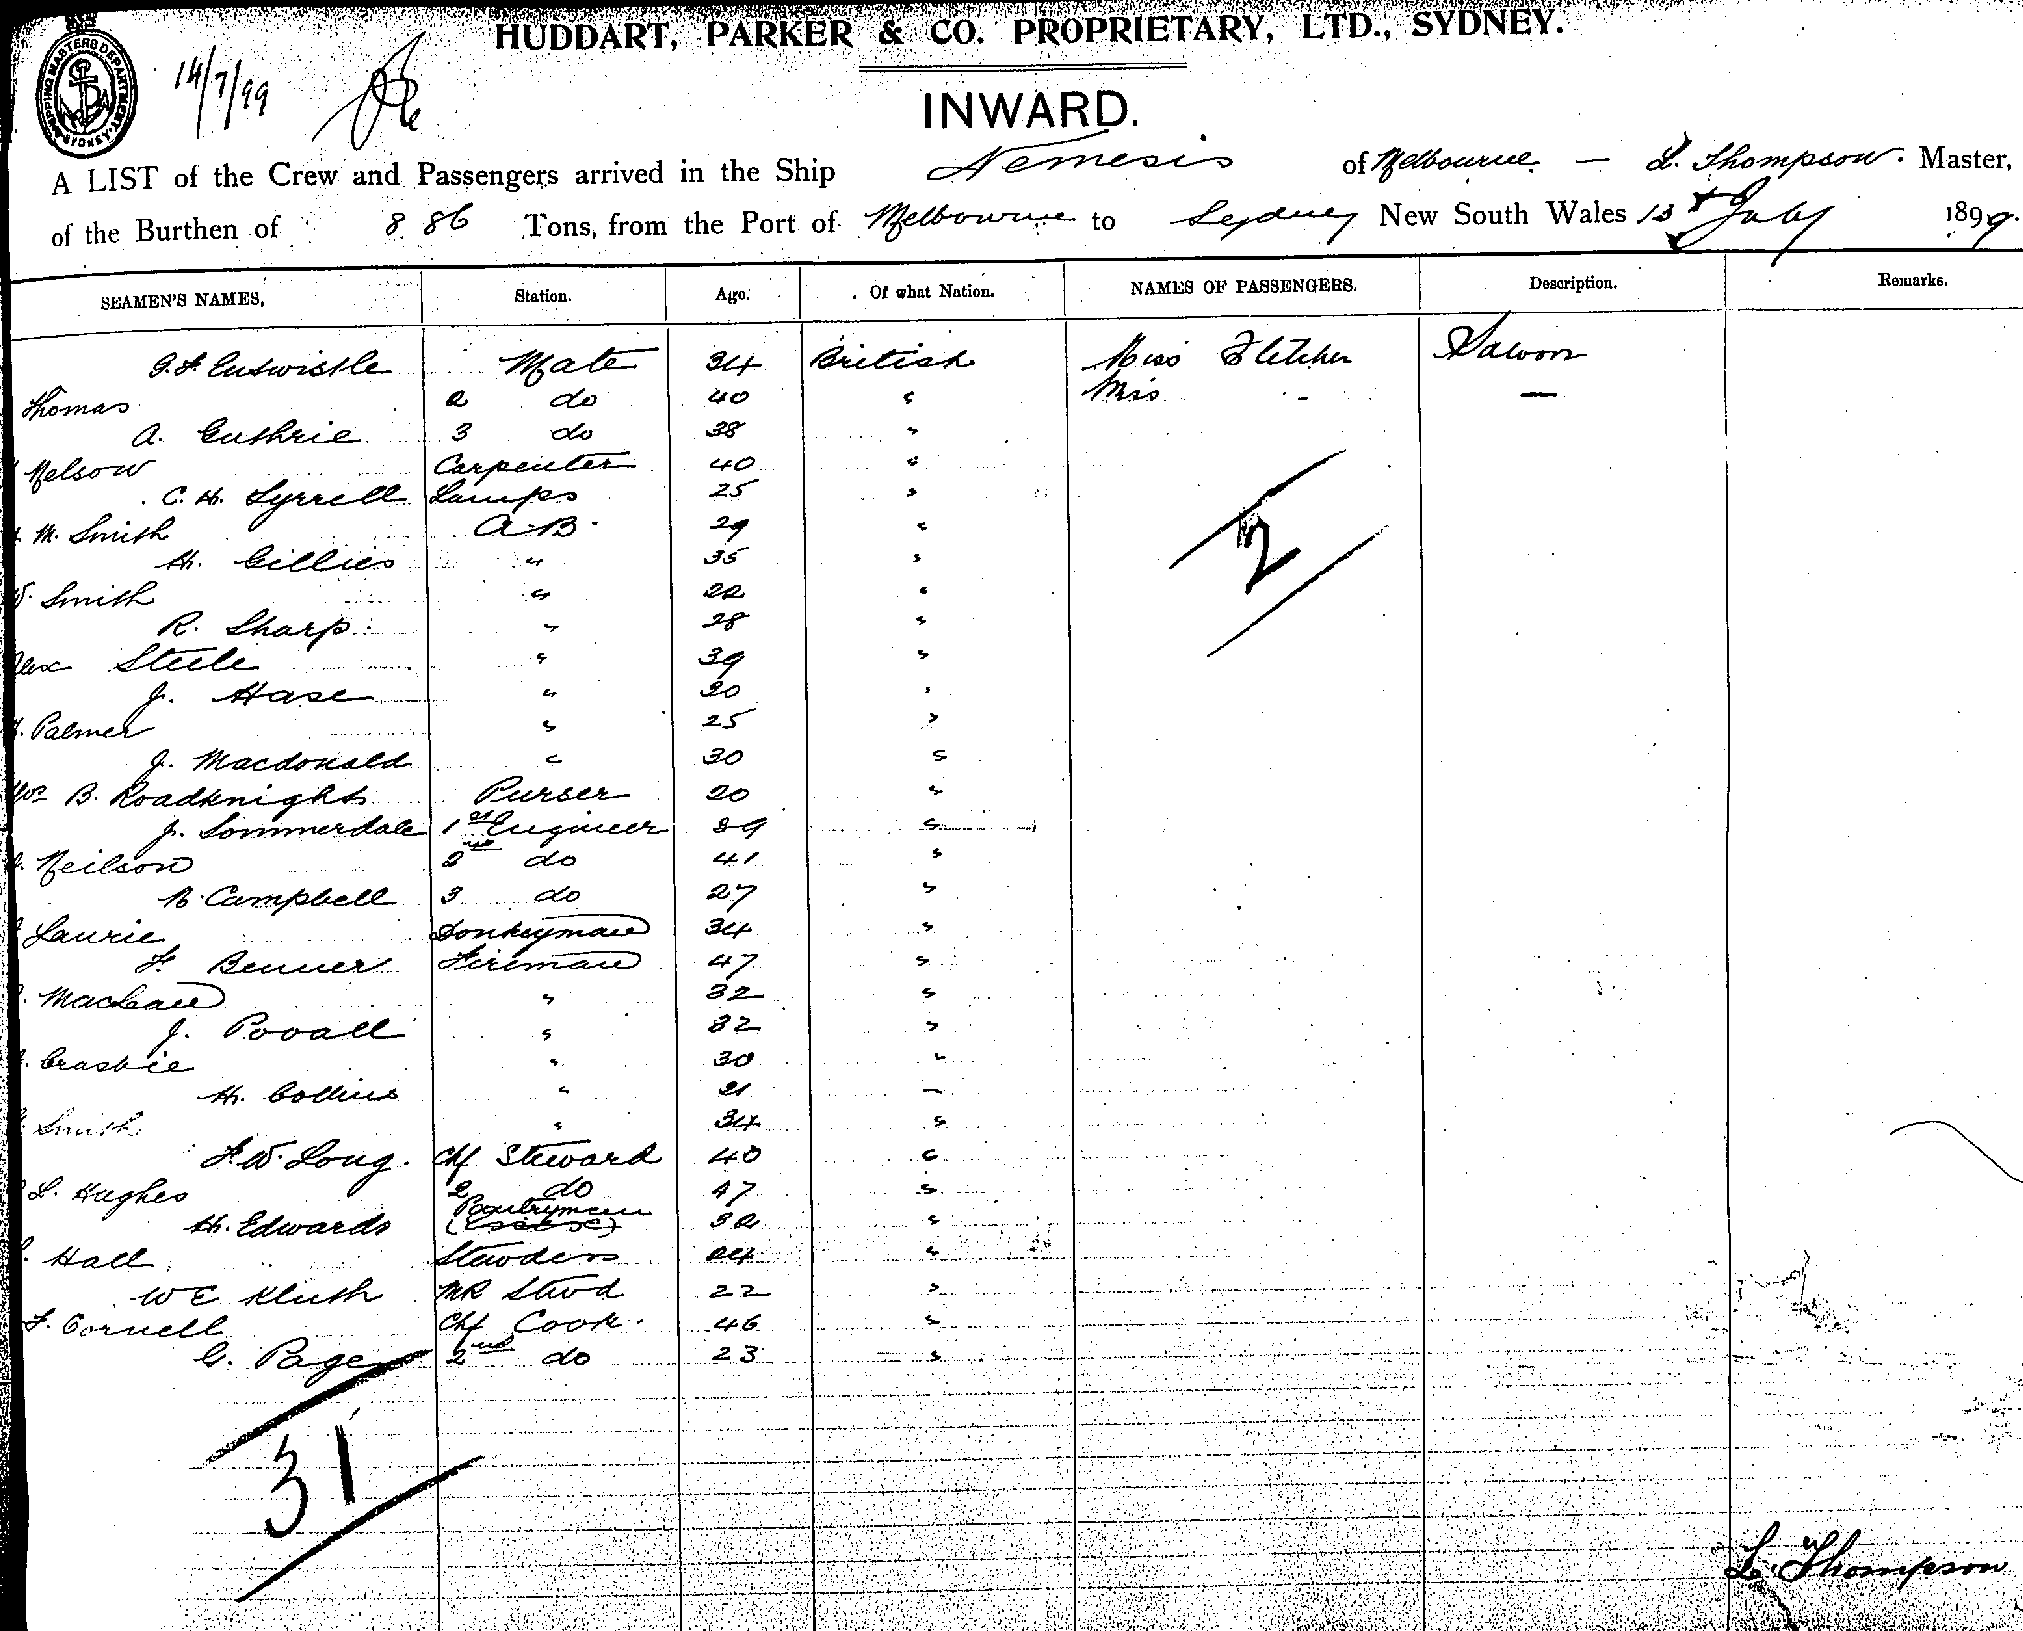 HUDDART, PARKER & CO. PROPRIETARY, LTD., SYDNEY.
SHIPPING MASTERS DEPARTMENT SYDNEY
14/7/99
INWARD.
A LIST of the Crew and Passengers arrived in the Ship Nemesis of Melbourne — L. Thompson. Master,
of the Burthen of 886 Tons, from the Port of Melbourne to Sydney New South Wales 13th July 1899.
SEAMEN'S NAMES, Station. Age. Of what Nation. NAMES OF PASSENGERS. Description. Remarks.
G. F. Entwistle Mate 34 British Miss Fletcher Saloon
Thomas 2 do 40 " Miss - —
A. Guthrie 3 do 38 "
Nelson Carpenter 40 "
C. H. Tyrrell Lamps 25 "
M. Smith A.B. 29 "
H. Gillies " 35 "
W. Smith " 22 "
R. Sharp " 28 "
Alex Steele " 39 "
J. Hase " 30 "
Palmer " 25 "
J. Macdonald " 30 "
B. Roadknight Purser 20 "
J. Sommerdale 1st Engineer 39 "
Neilson 2nd do 41 "
R. Campbell 3 do 27 "
Laurie Donkeyman 34 "
F. Benner Fireman 47 "
MacLean " 32 "
J. Povall " 32 "
Crasbie " 30 "
H. Collins " 21 "
Smith " 34 "
F. W. Long. Chf Steward 40 "
L. Hughes 2 do 47 "
H. Edwards Pantryman 32 "
Hall Stewdess 44 "
W E Kluth MR Stwd 22 "
F. Cornell Chf Cook. 46 "
G. Page 2nd do 23 "
2
31
L. Thompson